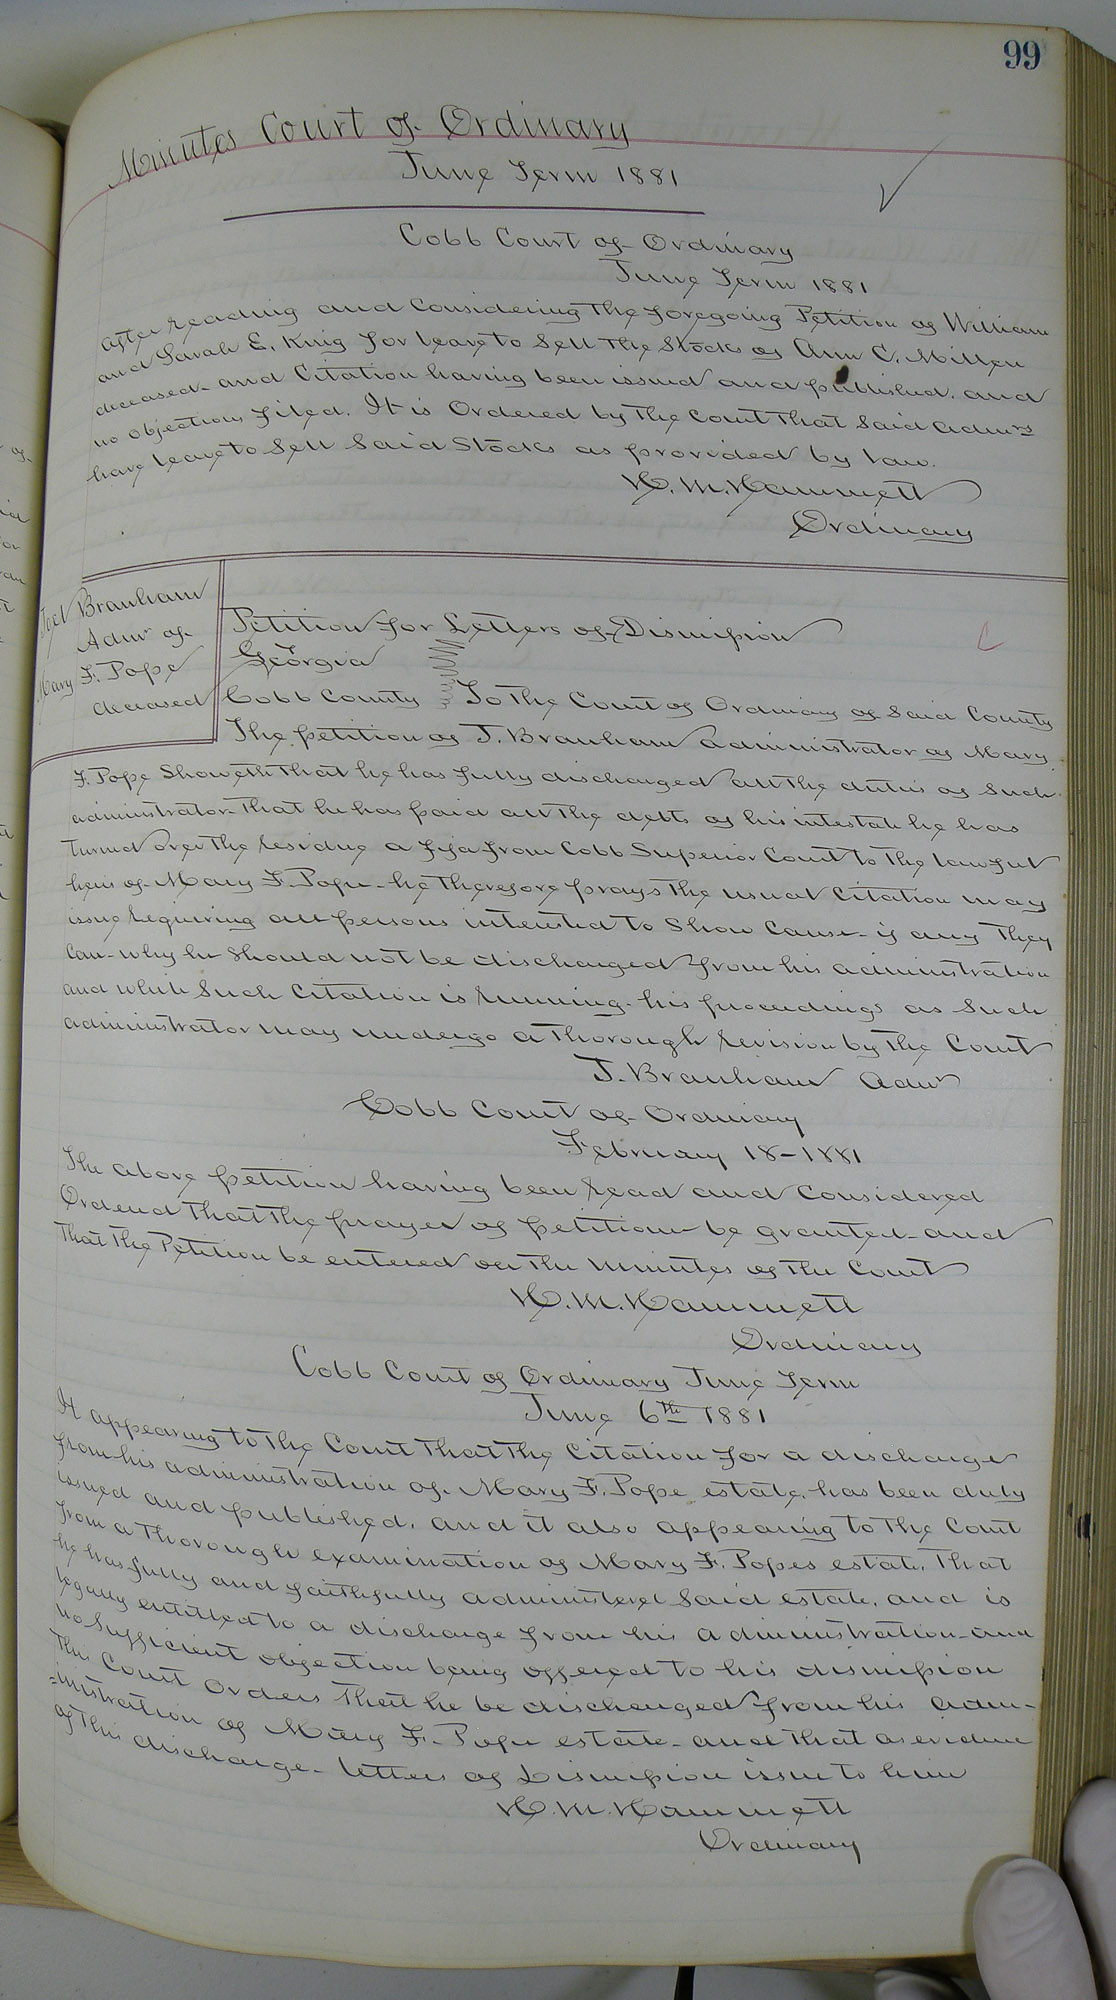 99
Minutes Court of Ordinary
June Term 1881
Cobb Court of Ordinary
June Term 1881
After reading and considering the foregoing Petition of William
and Sarah E. King for leave to Sell the Stocks of Ann C. Millen
deceased and Citation having been issued and published, and
no objections filed. It is Ordered by the Court that Said Admrs
have leave to Sell Said Stocks as provided by law.
H. M. Hammett
Ordinary
Joel Branham
Admr of
Mary F. Pope
deceased
Petition for Letters of Dismission
Georgia
Cobb County To the Court of Ordinary of Said County
The petition of J. Branham administrator of Mary
F. Pope Showeth that he has fully discharged all the duties of Such
administrator that he has paid all the debts of his intestate he has
turned over the residue a fifa from Cobb Superior Court to the lawful
heirs of Mary F. Pope he therefore prays the usual Citation may
issue requiring all persons intersted to Show Cause if any they
can why he should not be discharged from his administration
and while Such Citation is running his proceedings as Such
administrator may undergo a thorough revision by the Court
J. Branham Admr
Cobb Court of Ordinary
February 18-1881
The above petition having been read and considered
Ordered that the prayer of petition be granted and
that the Petition be entered on the minutes of the Court
H. M. Hammett
Ordinary
Cobb Court of Ordinary June Term
June 6th 1881
It appearing to the Court that the Citation for a discharge
from his administration of Mary F. Pope estate, has been duly
issued and published, and it also appearing to the Court
from a thorough examination of Mary F. Popes estate, that
he has fully and faithfully administered Said estate, and is
legally entitled to a discharge from his administration and
no Sufficient objection being offered to his dismission
This Court orders that he be discharged from his adm-
=inistration of Mary F. Pope estate and that as evidence
of this discharge letters of Dismission issue to him
H. M. Hammett
Ordinary